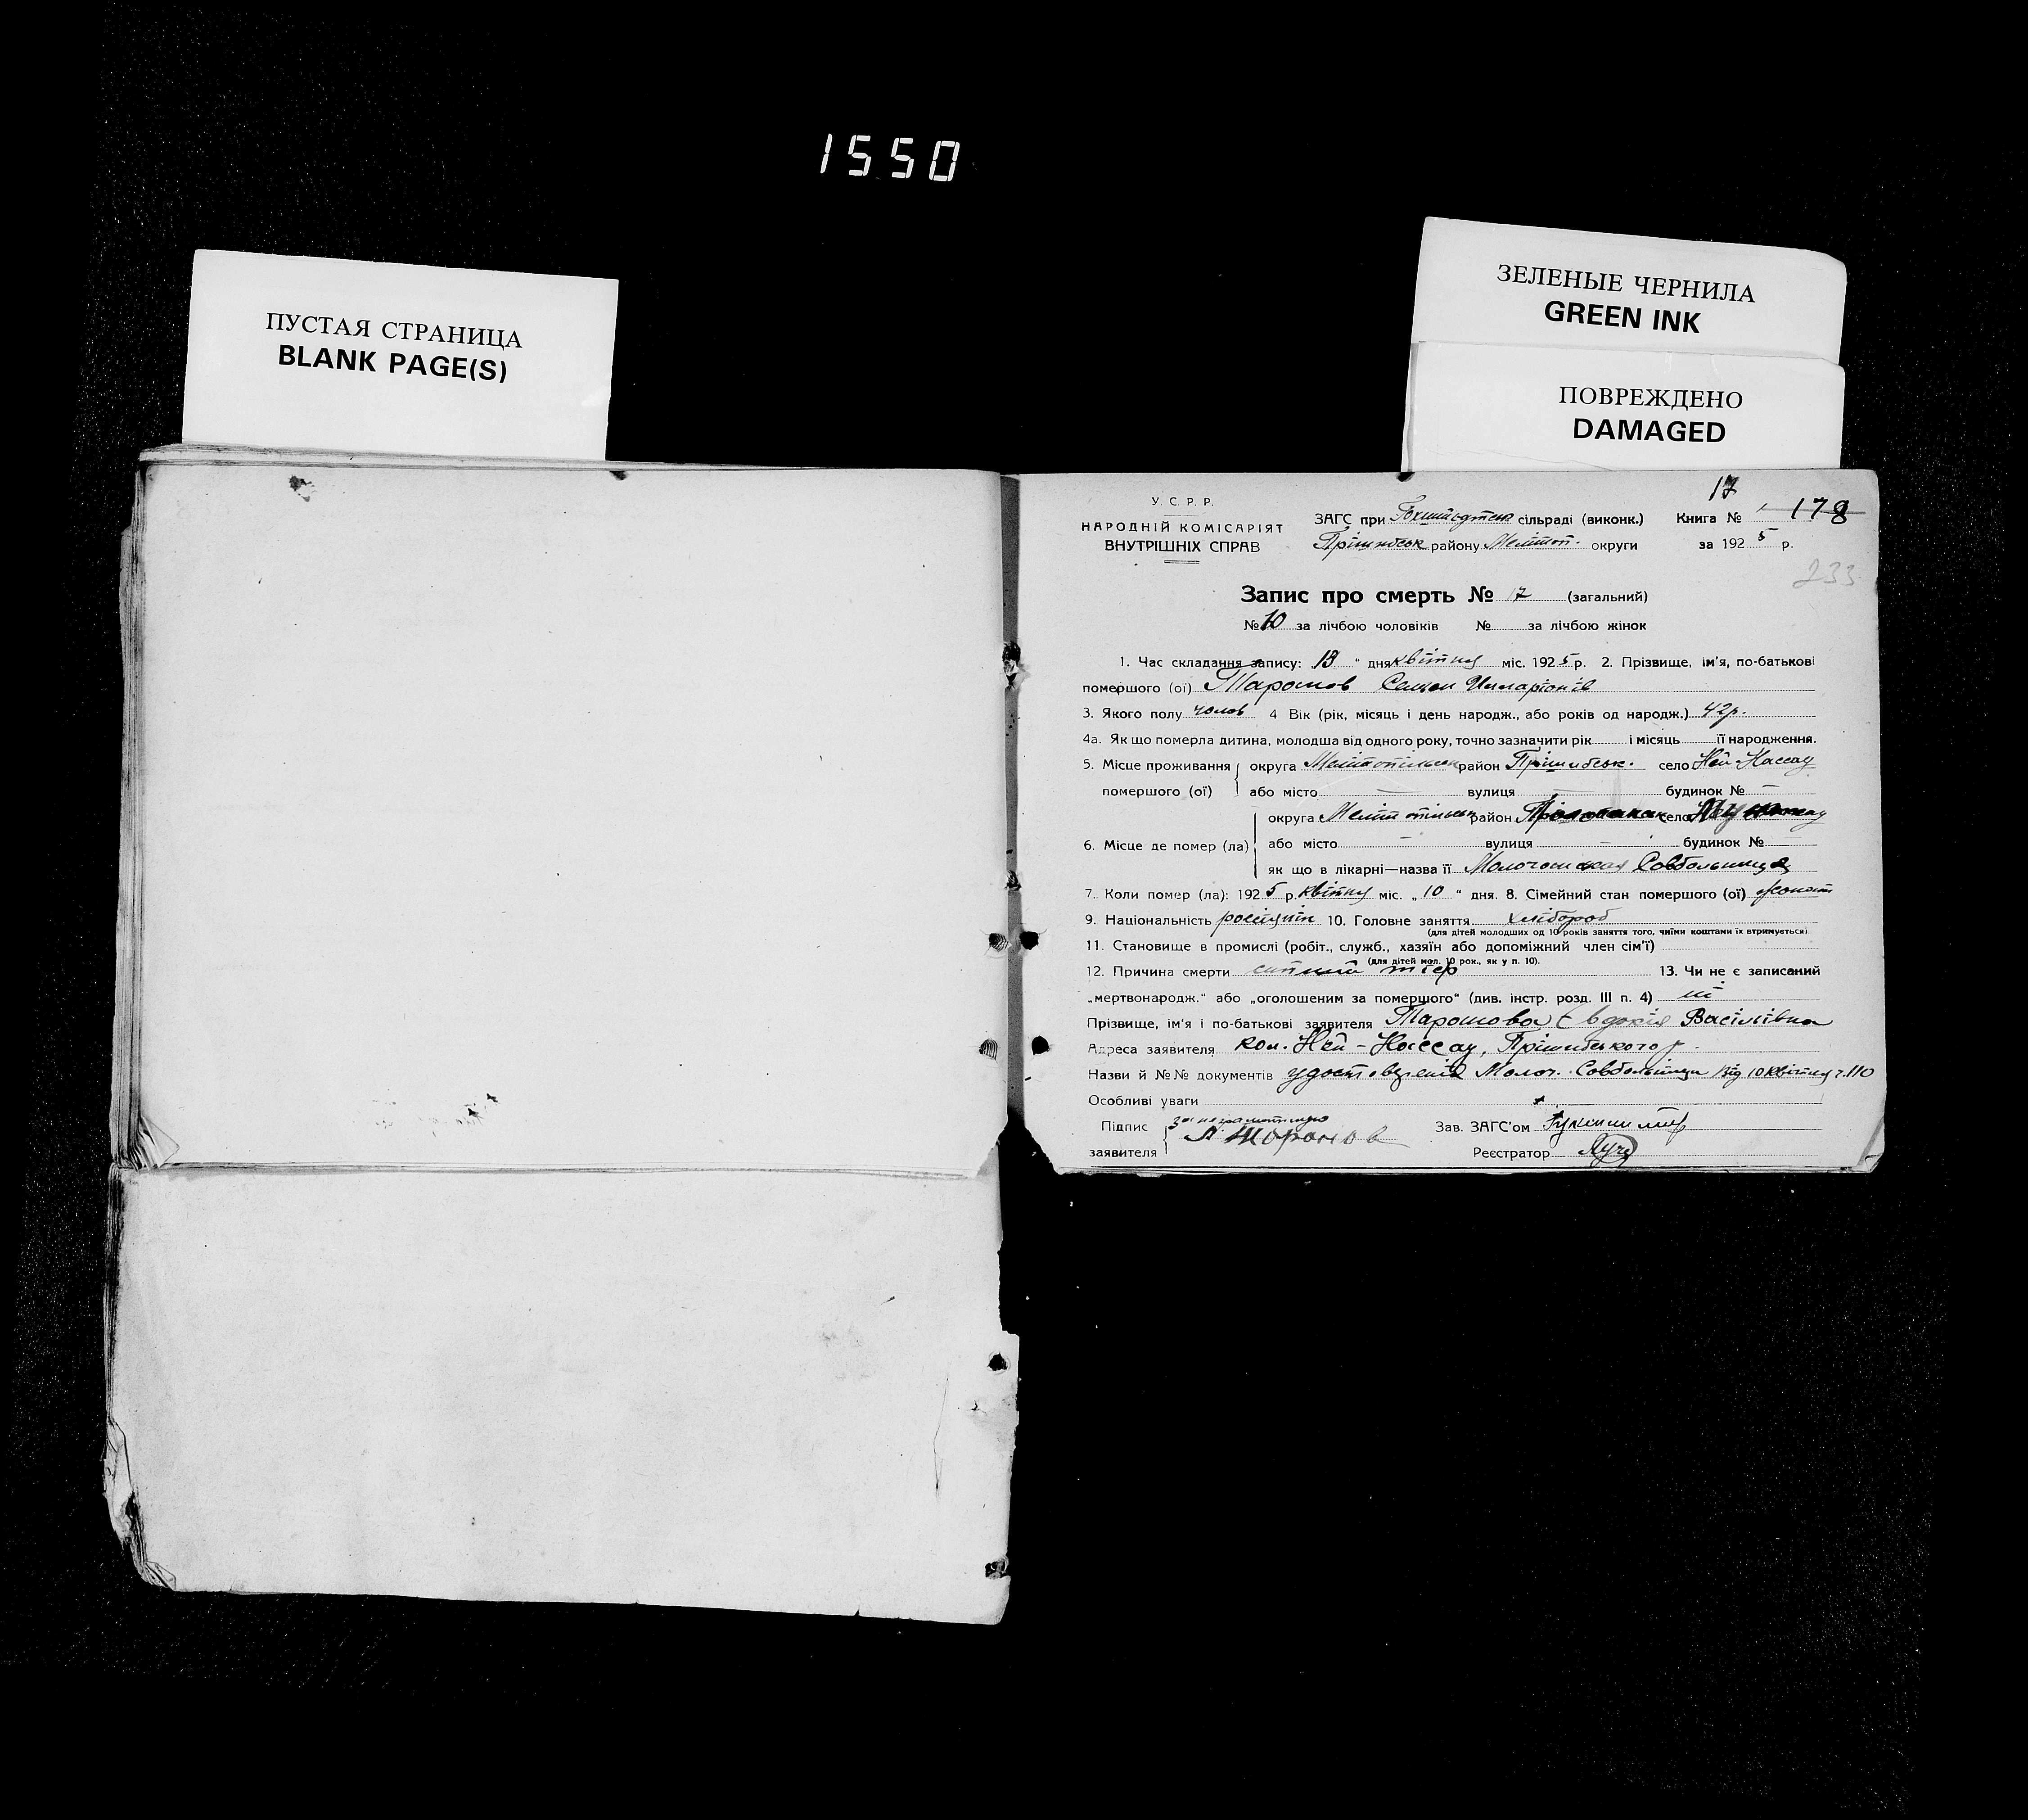 1550
ПУСТАЯ СТРАНИЦА
BLANK PAGE(S)
ЗЕЛЕНЫЕ ЧЕРНИЛА
GREEN INK
ПОВРЕЖДЕНО
DAMAGED
17
У. С. Р. Р.
НАРОДНІЙ КОМІСАРІЯТ
ВНУТРІШНІХ СПРАВ
ЗАГС при сільраді (виконк.) Книга № 178
Прішибськ району Мелітоп. округи за 1925 р.
233
Запис про смерть № 17 (загальний)
№ 10 за лічбою чоловіків № за лічбою жінок
1. Час складання запису: 13 " дня квітня міс. 1925 р. 2. Прізвище, ім'я, по-батькові
помершого (ої)
3. Якого полу чолов 4 Вік (рік, місяць і день народж., або років од народж.) 42 р.
4а. Як що померла дитина, молодша від одного року, точно зазначити рік і місяць її народження.
5. Місце проживання помершого (ої) округа Мелітопільськ район Прішибськ. село Ней-Нассау
або місто — вулиця — будинок № —
6. Місце де помер (ла) округа Мелітопільськ район село
або місто — вулиця — будинок №
як що в лікарні—назва її Совбольница
7. Коли помер (ла): 1925 р. квітня міс. „ 10 " дня. 8. Сімейний стан помершого (ої) жонат
9. Національність росіянін 10. Головне заняття хлібороб
(для дітей молодших од 10 років заняття того, чиїми коштами їх втримується)
11. Становище в промислі (робіт., служб., хазяїн або допоміжний член сім'ї)
(для дітей мол. 10 рок., як у п. 10).
12. Причина смерти 13. Чи не є записаний
„мертвонародж." або „оголошеним за помершого" (див. інстр. розд. III п. 4) ні
Прізвище, ім'я і по-батькові заявителя Евдокія Васілівна
Адреса заявителя кол. Ней-Нассау, Прішибського р.
Назви й №№ документів Молоч. Совбольниці від 10 квітня ч. 110
Особливі уваги
Підпис заявителя за неграмотную
Зав. ЗАГС'ом
Реєстратор